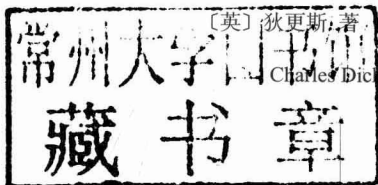 〔英〕狄更斯 著
常州大学图书馆
Charles
藏书章